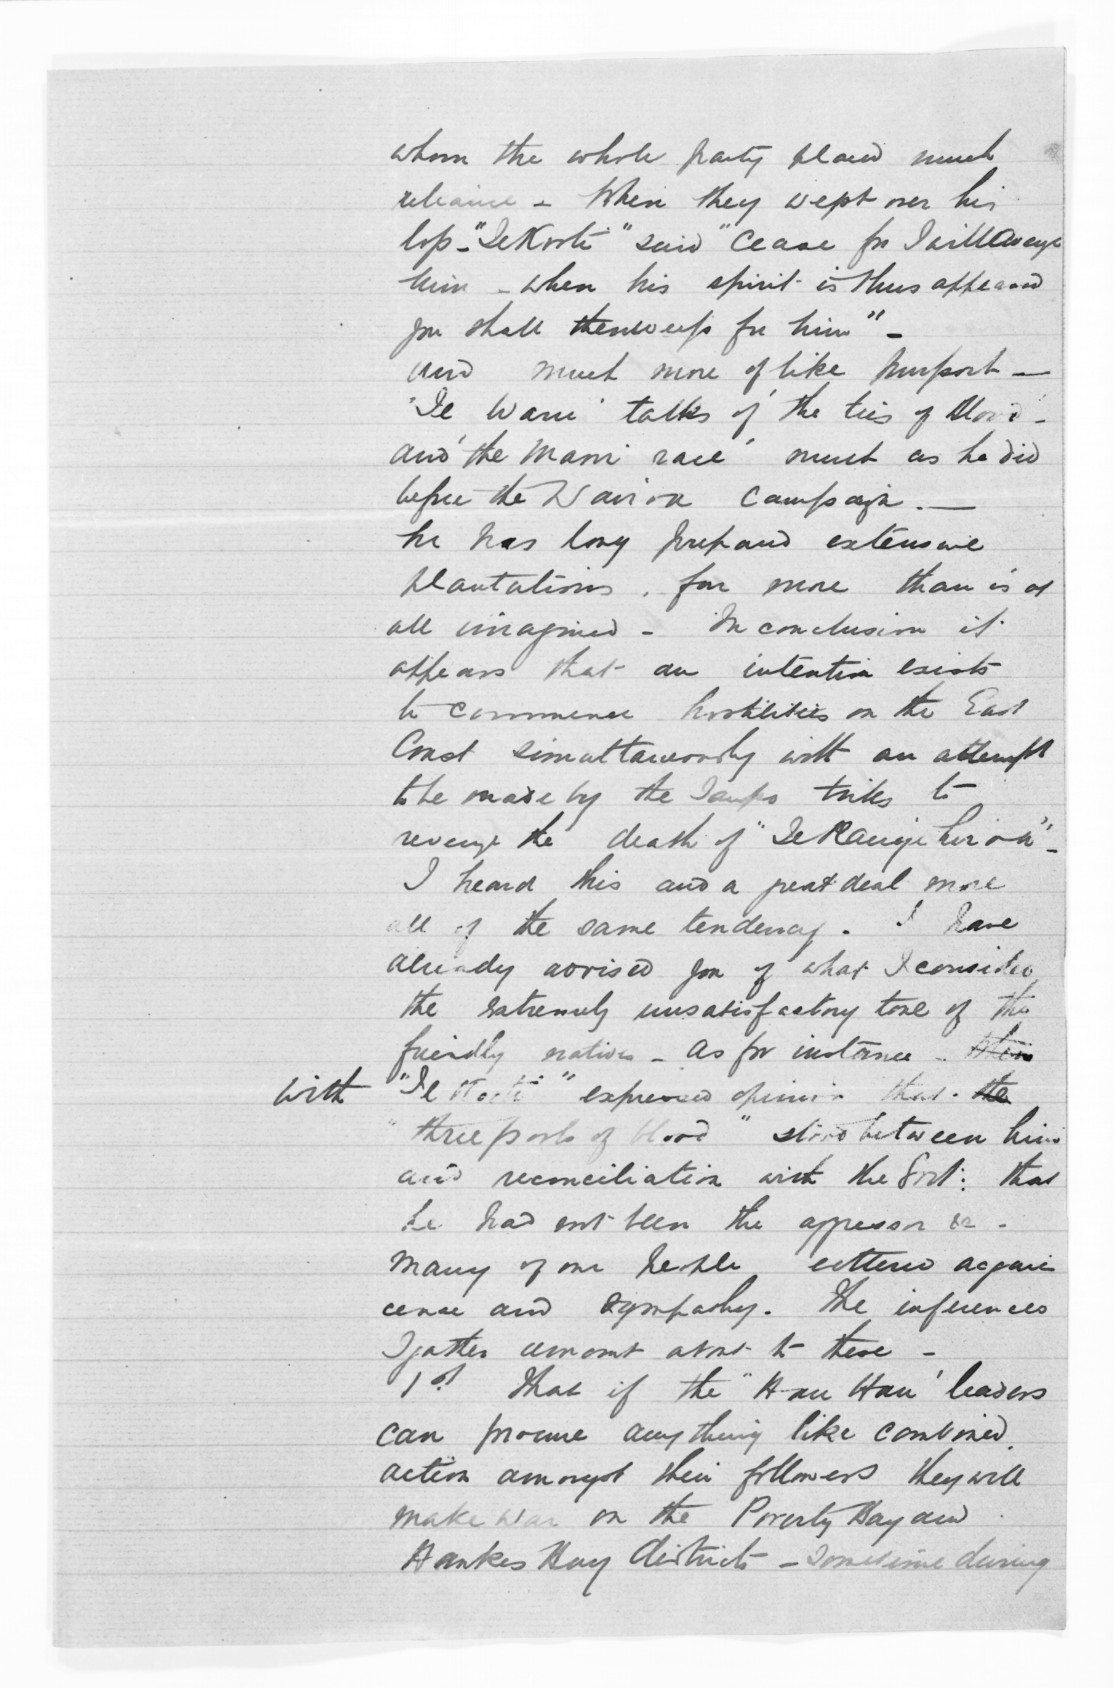 whom the whole party placed much
reliance - When they wept over his
loss - "Te Kooti" said "Cease for I will avenge
him - when his spirit is thus appeased
you shall then weep for him" -
and much more of like purport -
'Te Waru' talks of 'the ties of blood' -
and 'the Maori race' much as he did
before the Wairoa Campaign. -
he has long prepared extensive
plantations, far more than is at
all imagined - In conclusion it
appears that an intention exists
to commence hostilities on the East
Coast simultaneously with an attempt
to be made by the Taupo tribes to
revenge the death of "Te Rangihiroa" -
I heard this and a great deal more
all of the same tendency. I have
already advised you of what I consider
the extremely unsatisfactory tone of the
friendly natives - as for instance -
with "Te Kooti" expressed opinion that the
"three pools of blood" stood between him
and reconciliation with the Govt: that
he had not been the aggressor &c -
Many of our people uttered acquies
cence and sympathy. The inferences
I gather amount about to these -
1st That if the "Hau Hau" leaders
can procure anything like combined
action amongst their followers they will
make war on the Poverty Bay and
Hawkes Bay districts - Sometime during